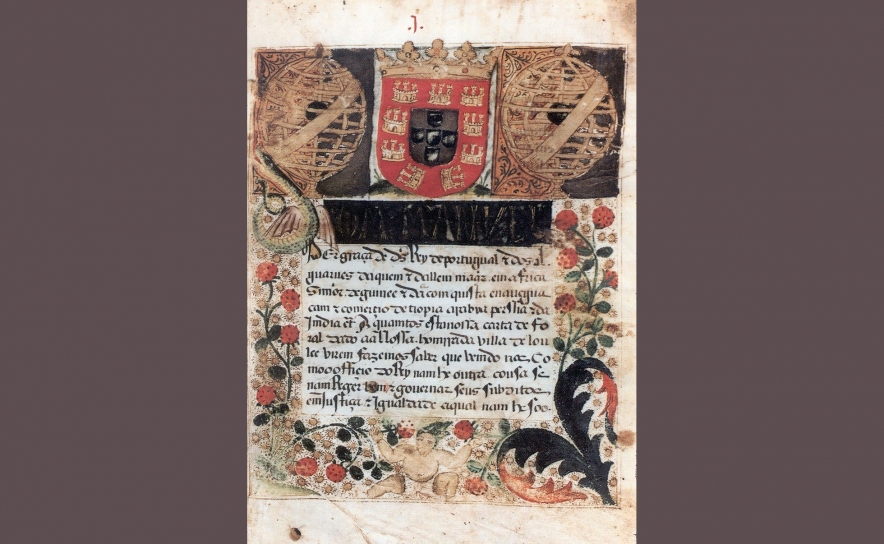 .J.
Per graça de ds Rey de portugual & dos al
guarues da quem & dallem maar em africa
Sñor de guinee & da com quista & nauegua
cam & comercio de tiopia arabya persia & da
India &c A quantos esta nossa carta de fo
ral dado aa Nossa homrrada villa de lou
lee virem fazemos saber que beindo nos Co
moo officio do Rey nam he outra cousa se
nam Reger bem & governar seus subditos
em Justiça & Igualdade a qual nam he soo